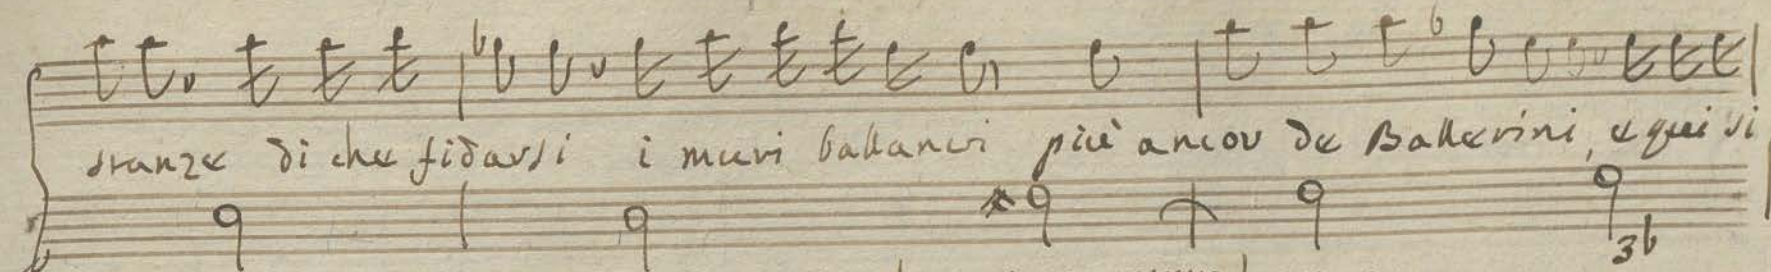 stanze di che fidarsi i muri ballanci più ancor de Ballerini, e qui si
3b